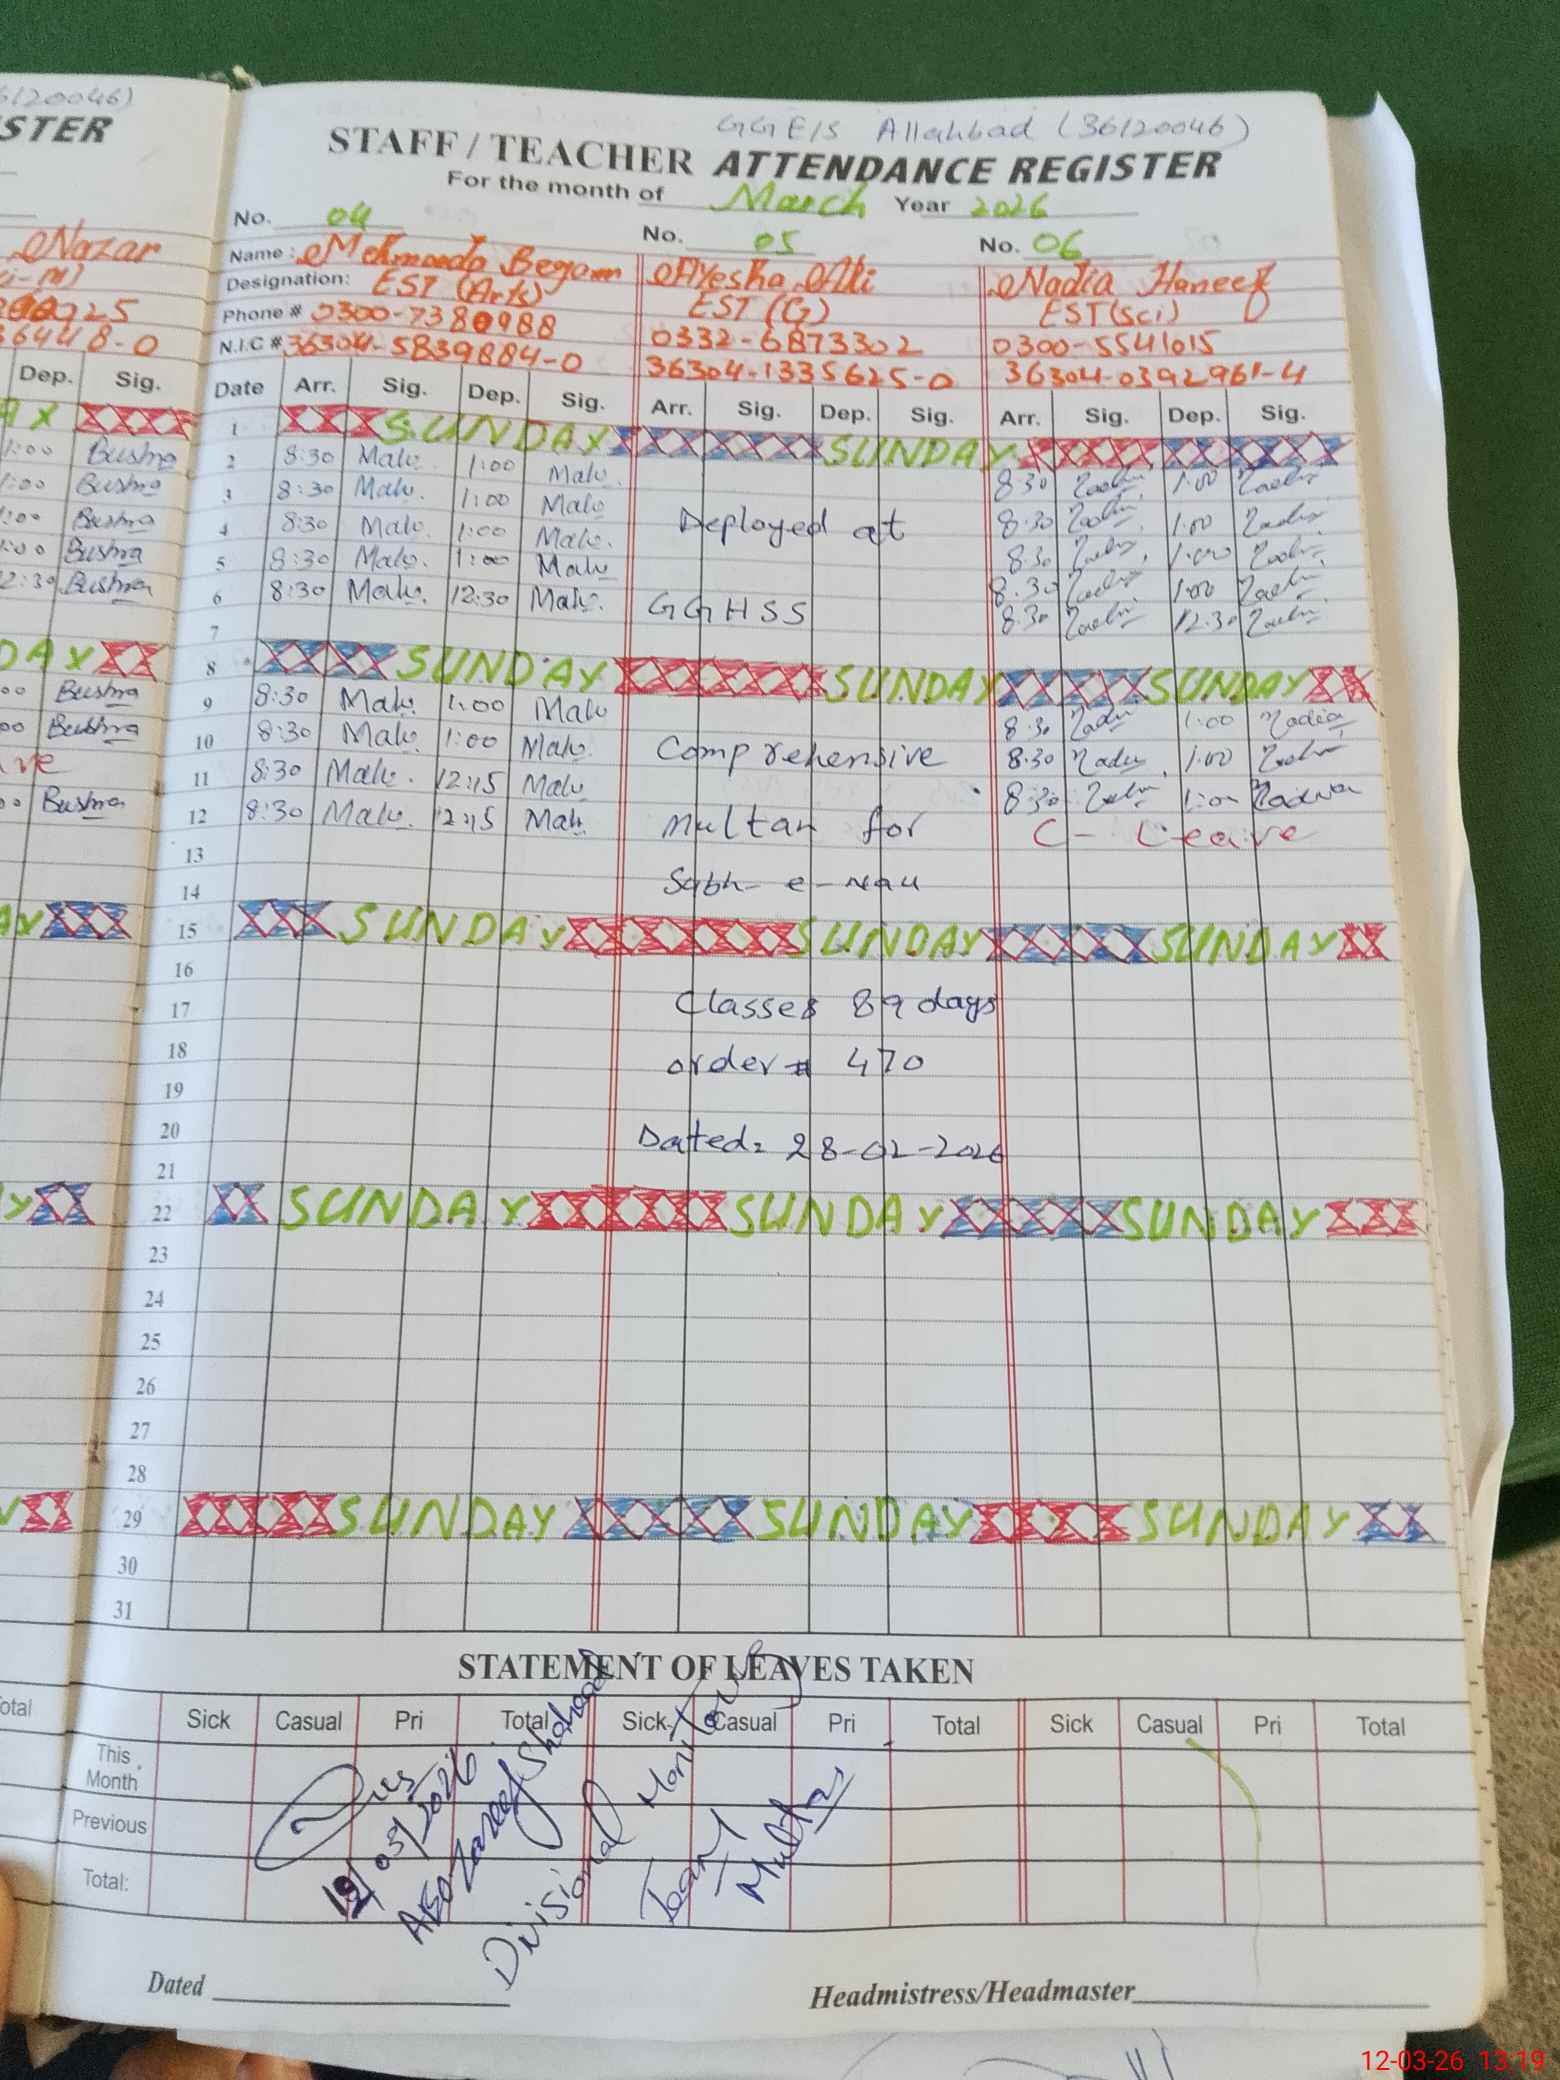 36120046)
STER
GGE/S Allahbad (36120046)
STAFF / TEACHER ATTENDANCE REGISTER
For the month of March Year 2026
No. 04 No. 05 No. 06
Nazar
Name: Mehmooda Begam Ayesha Ali Nadia Haneef
Designation: EST (Arts) EST (G) EST (sci)
Phone # 0300-7380988 0332-6873302 0300-5541015
36448-0
N.I.C # 36304-5839884-0 36304-1335625-0 36304-0392961-4
Dep. Sig. Date Arr. Sig. Dep. Sig. Arr. Sig. Dep. Sig. Arr. Sig. Dep. Sig.
AY 1 SUNDAY SUNDAY
1:00 Bushra 2 8:30 Mah. 1:00 Mah. 8:30 1:00
1:00 Bushra 3 8:30 Mah. 1:00 Mah 8:30 1:00
1:00 Bushra 4 8:30 Mah. 1:00 Mah. Deployed at 8:30 1:00
1:00 Bushra 5 8:30 Mah. 1:00 Mah 8:30 1:00
12:30 Bushra 6 8:30 Mah. 12:30 Mah. GGHSS 8:30 12:30
7
DAY 8 SUNDAY SUNDAY SUNDAY
00 Bushra 9 8:30 Mah. 1:00 Mah 8:30 Nadia 1:00 Nadia
00 Bushra 10 8:30 Mah. 1:00 Mah. Comprehensive 8:30 Nadia 1:00
ve 11 8:30 Mah. 12:15 Mah 8:30 1:00 Nadia
00 Bushra 12 8:30 Mah. 12:15 Mah Multan for C- Leave
13
14 Sabh-e-Nau
AY 15 SUNDAY SUNDAY SUNDAY
16
17 Classes 89 days
18 order # 470
19
20 Dated: 28-02-2026
21
Y 22 SUNDAY SUNDAY SUNDAY
23
24
25
26
27
28
29 SUNDAY SUNDAY SUNDAY
30
31
STATEMENT OF LEAVES TAKEN
otal Sick Casual Pri Total Sick Casual Pri Total Sick Casual Pri Total
This Month
Previous
Total:
12/03/2026
AEO Zareef Shahead
Divisional Monitoring
Team
Multan
Dated
Headmistress/Headmaster
12-03-26 13:19